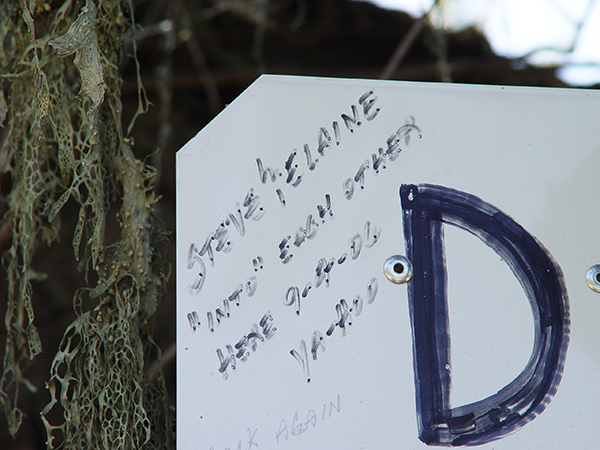 STEVE n. ELAINE
"INTO" EACH OTHER
HERE 9-2-06
YA-HOO
AGAIN
D